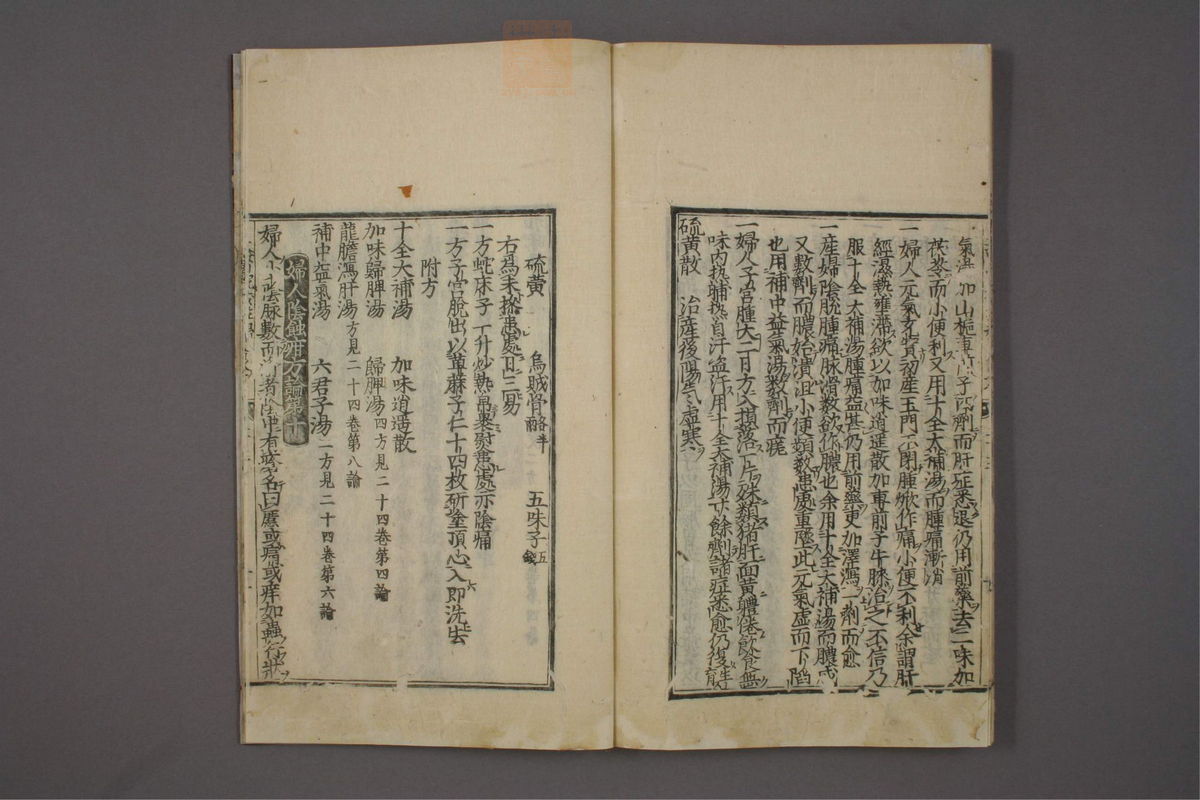 氣湯加山梔車前子而肝症悉退仍用前藥去二味加
茯苓而小便利又用十全大補湯而腫痛漸消
一婦人元氣素弱初産玉門不閉腫焮作痛小便不利余謂肝
經濕熱壅滯欲以加味逍遥散加車前子牛膝治之不信乃
服十全大補湯腫痛益甚仍用前藥更加澤瀉一劑而愈
一産婦陰脱腫痛脉滑數欲作膿也余用十全大補湯而膿成
又數劑而膿始潰沮小便頻數患處重墜此元氣虚而下陷
也用補中益氣湯數劑而痊
一婦人子宮腫大二日方入損落一片殊類猪肝面黄體倦飲食無
味内熱晡熱自汗盗汗用十全大補湯廿餘劑諸症悉愈仍復生育
硫黄散 治産後陽氣虚寒
硫黄 烏賊骨 酪半 五味子 五錢
右爲末摻患處日三易
一方蛇床子一升炒熱帛裹熨患處亦陰痛
一方子宮脱出以萆麻子仁十四枚研塗頂心入即洗去
附方
十全大補湯 加味逍遥散
加味歸脾湯 歸脾湯 四方見二十四卷第四論
龍膽瀉肝湯 方見二十四卷第八論
補中益氣湯 六君子湯 二方見二十四卷第六論
婦人陰蝕 方論第十
婦人少陰脉數而滑者陰中有瘡名曰䘌或痛或痒如蟲行狀